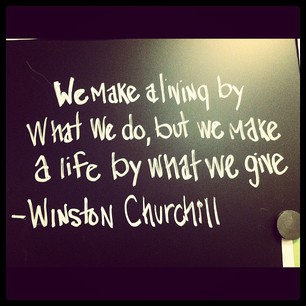 We make a living by
What We do, but we make
a life by what we give
-Winston Churchill